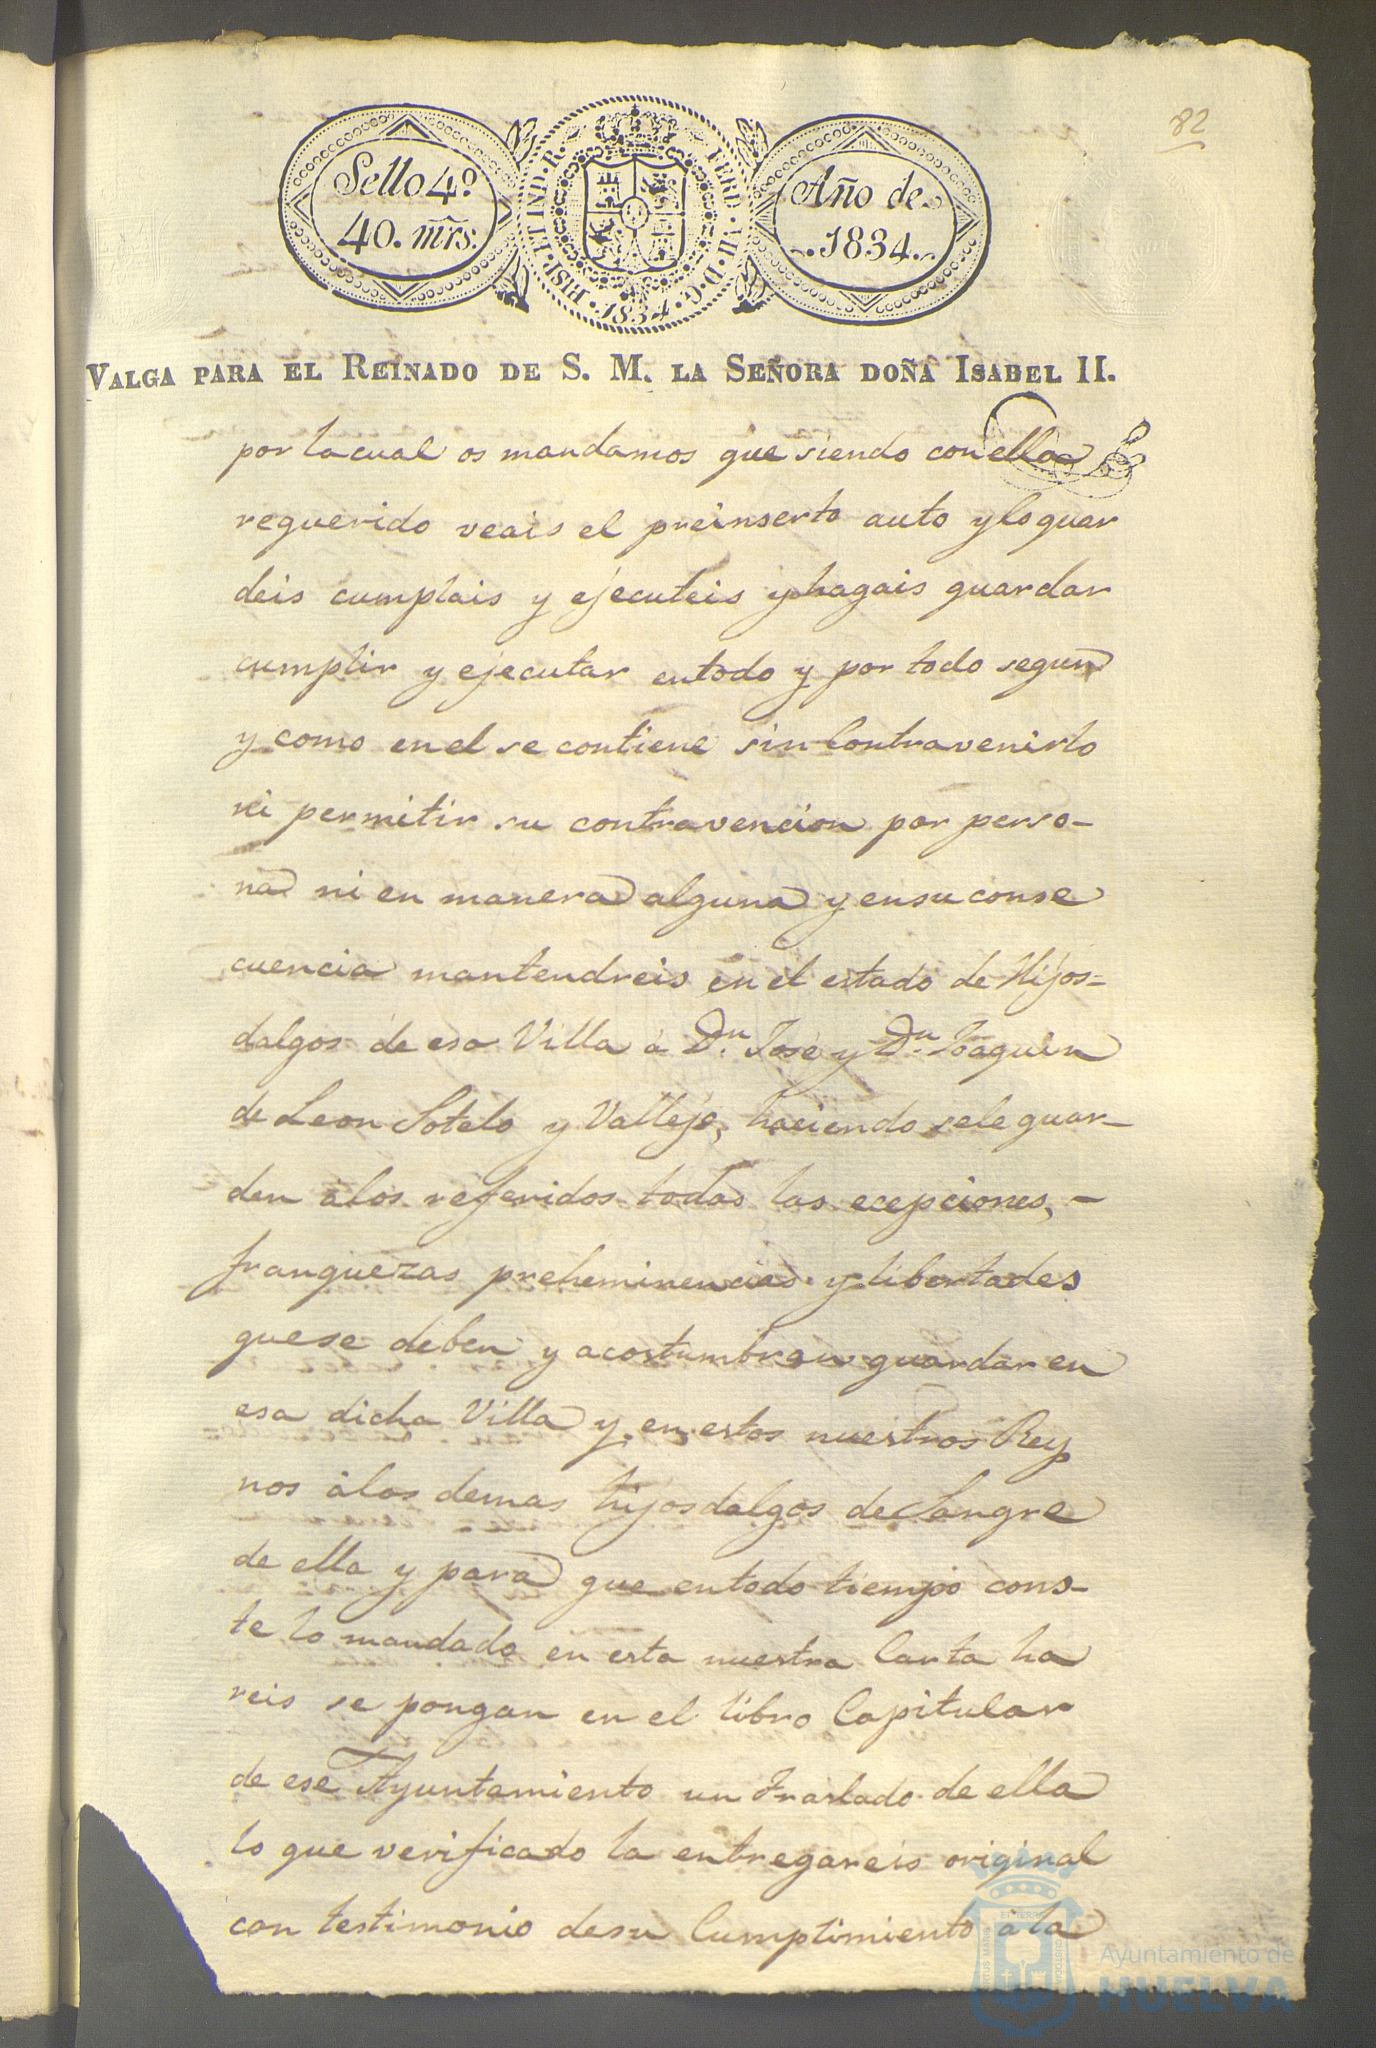 82
Sello 4º
40. mrs.
HISP. ET IND. R. FERD. VII. D. G. 1834.
Año de
1834.
VALGA PARA EL REINADO DE S. M. LA SEÑORA DOÑA ISABEL II.
por la cual os mandamos que siendo con ella
requerido veais el preinserto auto y lo guar
deis cumplais y ejecuteis y hagais guardar
cumplir y ejecutar en todo y por todo segun
y como en el se contiene sin Contravenirlo
ni permitir su contravencion por perso-
na ni en manera alguna y en su conse
cuencia mantendreis en el estado de Hijos=
dalgos de esa Villa á Dn. José y Dn. Joaquin
de Leon Sotelo y Vallejo, haciendo se le guar-
den a los referidos todas las ecepciones, -
franquezas preheminencias y libertades
que se deben y acostumbran guardar en
esa dicha Villa y en estos nuestros Rey
nos á los demas hijosdalgos de Sangre
de ella y para que en todo tiempo cons-
te lo mandado en esta nuestra Carta ha
reis se pongan en el libro Capitular
de ese Ayuntamiento un Traslado de ella
lo que verificado la entregareis original
con testimonio de su Cumplimiento a la
Ayuntamiento de
HUELVA